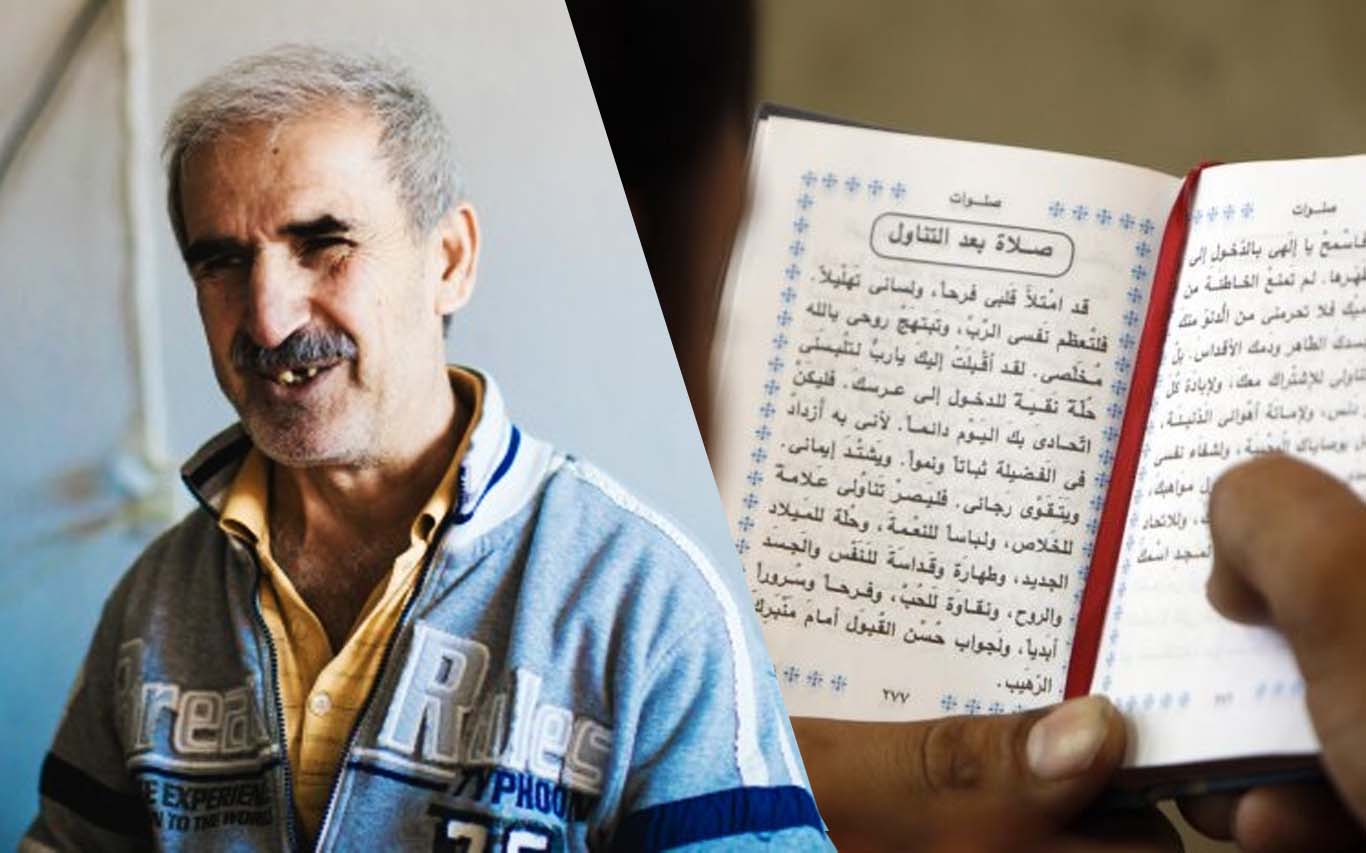 Break
Rules
THE EXPERIEN
TYPHOON
N TO THE WORLD
76
صلـوات
صـلاة بعد التناول
قد امْتلأ قَلبى فرحاً، ولسانى تهليلاً.
فلتُعظم نفسى الرّبّ، وتَبتهجْ روحى بالله
مُخلّصى. لقد أقْبلتُ إليكَ ياربُّ لتلبسنى
حُلّة نقـيّة للدخول إلى عـرسكَ. فليكنْ
اتّحادى بكَ اليـوْم دائمـاً. لأنى به أزدادُ
فى الفضيلة ثباتاً ونمواً. ويشْتدّ إيمانى.
ويتقـوّى رَجائى. فليَصرْ تناوُلى عَلامـة
للخلاص، ولباساً للنعْمة، وحُلّة للميلاد
الجديد، وطهارَة وقداسَة للنَفْس والجَسد
والروح، ونقـاوَة للحُبّ، وفـرحـاً وسُـروراً
أبدياً، ولجواب حُسْن القُبول أمام منْبَركَ
الرّهيب.
٢٧٧
صلـوات
فاسْمحْ يا إلَهى بالدّخول إلى
لم تَمنعْ الخـاطئـة من
فلا تحرمنى من الدنوّ منك
الطاهر ودمك الأقدس. بلْ
للإشتْراك معكَ، ولإبادَة كل
دنس، ولإماتَة أهْوائى الذّميمَة،
ولشفاء نفسى
مواهبكَ،
وللاتحاد
اسْمكَ